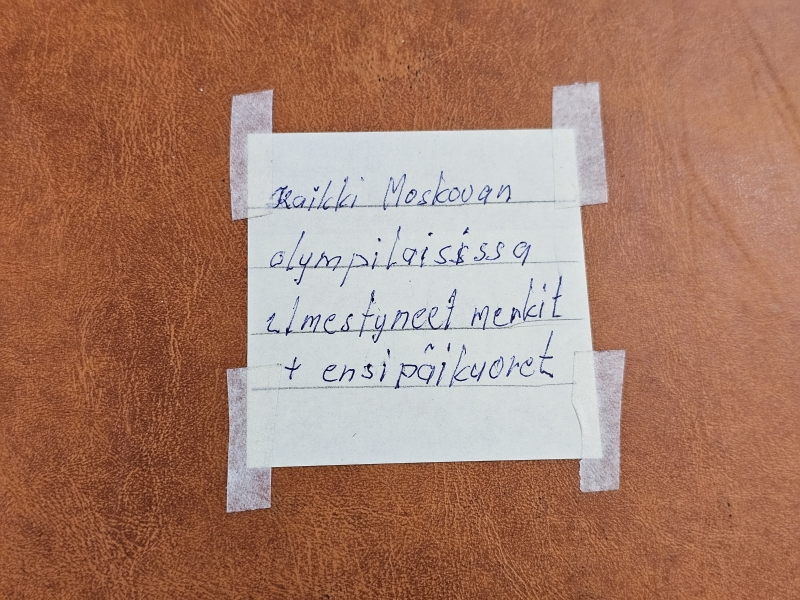 Kaikki Moskovan
olympilaisissa
ilmestyneet merkit
+ ensipäikuoret